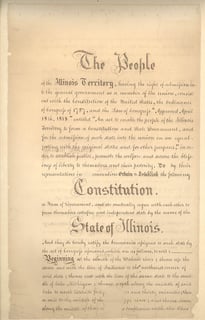 The People
of the Illinois Territory, having the right of admission in-
to the general government as a member of the union, consist-
ent with the Constitution of the United States, the Ordinance
of Congress of 1787, and the Law of Congress "Approved April
18th, 1818" entitled "An act to enable the people of the Illinois
Territory to form a Constitution and State Government, and
for the admission of such state into the union on an equal
footing with the original states and for other purposes," in or-
der to establish justice, promote the welfare and secure the bless-
ings of liberty to themselves and their posterity, Do by their
representatives in convention Ordain & Establish the following
Constitution.
or Form of Government, and do mutually agree with each other to
form themselves into a free and independent state by the name of the
State of Illinois.
And they do hereby ratify the boundaries assigned to such state by
the act of Congress aforesaid which are as follows, to wit:
Beginning at the mouth of the Wabash river; thence up the
same and with the line of Indiana to the northwest corner of
said state; thence east with the line of the same state to the middle
of Lake Michigan; thence north along the middle of said
lake to